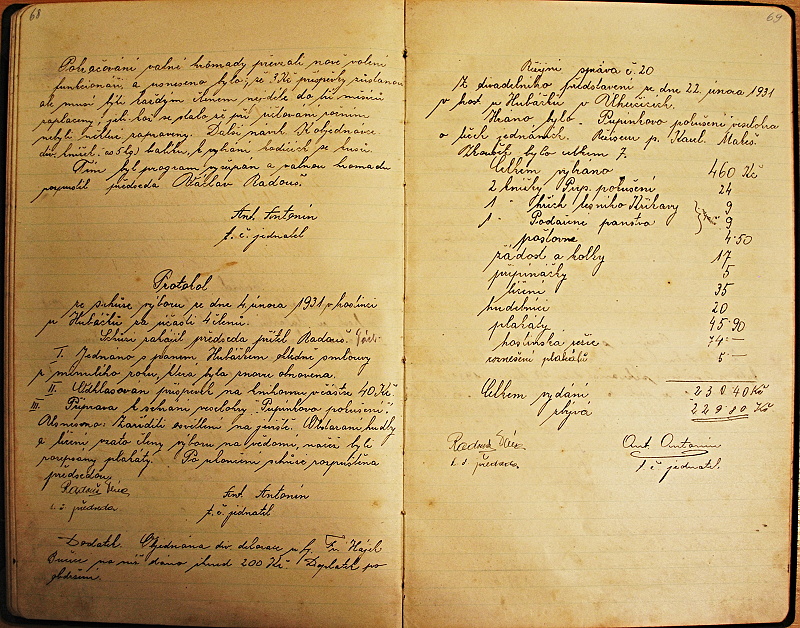 68
Pokračování valné hromady převzali nově volení
funkcionáři, a usneseno bylo, že 3 Kč příspěvky zůstanou
ale musí býti každým členem nejdéle do tří měsíců
zaplaceny, jeli kož se stalo, že při účtování
nebyli některé zapraveny. Další navrh K objednávce
div. knížek (as 5 kg) balíku, k vybrání hodících se kusů.
Tím byl program vyčerpán a valnou hromadu
rozpustil předseda Václav Radouš.
Ant. Antonín
t. č. jednatel
Protokol
ze schůze výboru ze dne 4. února 1931 v hostinci
u Hubáčků za účasti 4 členů.
Schůzi zahájil předseda přítel Radouš.
I. Jednáno s panem Hubáčkem ohledně smlouvy
z minulého roku, která byla znovu obnovena.
II. Odhlasován příspěvek na knihovnu v částce 40 Kč.
III. Příprava k sehrání veselohry "Pupínkova pokušení".
Usneseno: Zaříditi osvětlení na jeviště. Obstarání hudby
a líčení vzato členy výboru na vědomí, načež byli
rozepsány plakáty. Po ukončení schůze rozpuštěna
předsedou.
Radouš Václ.
t. č. předseda
Ant. Antonín
t. č. jednatel
Dodatek. Objednána div. dekorace u fy. Fr. Hájek
Sušice na niž dáno ihned 200 Kč. Doplatek po
obdržení.
69
Režijní zpráva č. 20
Z divadelního představení ze dne 22. února 1931
v host. u Hubáčků v Uhercicích.
Hráno bylo "Pupínkovo pokušení" veselohra
o třech jednáních. Režisérem p. Karel Mareš.
Zkoušek bylo celkem 7.
Celkem vybráno 460 Kč
2 knížky Pup. pokušení 24
1 " Hřích lesního Křikavy 9
1 " Podařené panstvo 9
poštovné 4·50
žádost a kolky 17
připínáčky 5
líčení 35
hudebníci 20
plakáty 45·90
hostinská režie 74·—
roznešení plakátů 5·—
Celkem vydání 230·40 Kč
zbývá 229·80 Kč
Radouš Václ.
t. č. předseda
Ant. Antonín
t. č. jednatel.